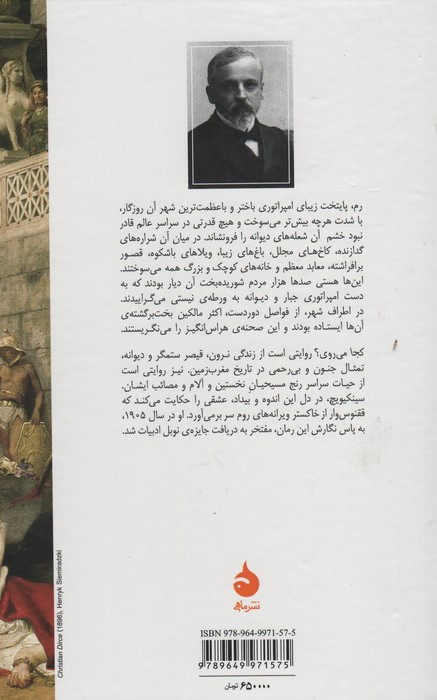 رم، پایتخت زیبای امپراتوری باختر و باعظمت‌ترین شهر آن روزگار،
با شدت هرچه بیش‌تر می‌سوخت و هیچ قدرتی در سراسر عالم قادر
نبود خشم آن شعله‌های دیوانه را فرونشاند. در میان آن شراره‌های
گدازنده، کاخ‌های مجلل، باغ‌های زیبا، ویلاهای باشکوه، قصور
برافراشته، معابد معظم و خانه‌های کوچک و بزرگ همه می‌سوختند.
این‌ها هستی صدها هزار مردم شوریده‌بخت آن دیار بودند که به
دست امپراتوری جبار و دیوانه به ورطه‌ی نیستی می‌گراییدند.
در اطراف شهر، از فواصل دوردست، اکثر مالکین بخت‌برگشته‌ی
آن‌ها ایستاده بودند و این صحنه‌ی هراس‌انگیز را می‌نگریستند.
کجا می‌روی؟ روایتی است از زندگی نرون، قیصر ستمگر و دیوانه،
تمثال جنون و بی‌رحمی در تاریخ مغرب‌زمین. نیز روایتی است
از حیات سراسر رنج مسیحیان نخستین و آلام و مصائب ایشان.
سینکیویچ، در دل این اندوه و بیداد، عشقی را حکایت می‌کند که
ققنوس‌وار از خاکستر ویرانه‌های روم سر برمی‌آورد. او در سال ۱۹۰۵،
به پاس نگارش این رمان، مفتخر به دریافت جایزه‌ی نوبل ادبیات شد.
Christian Dirce (1896), Henryk Siemiradzki
نشر ماهی
ISBN 978-964-9971-57-5
9 789649 971575
۶۵۰۰۰۰ تومان